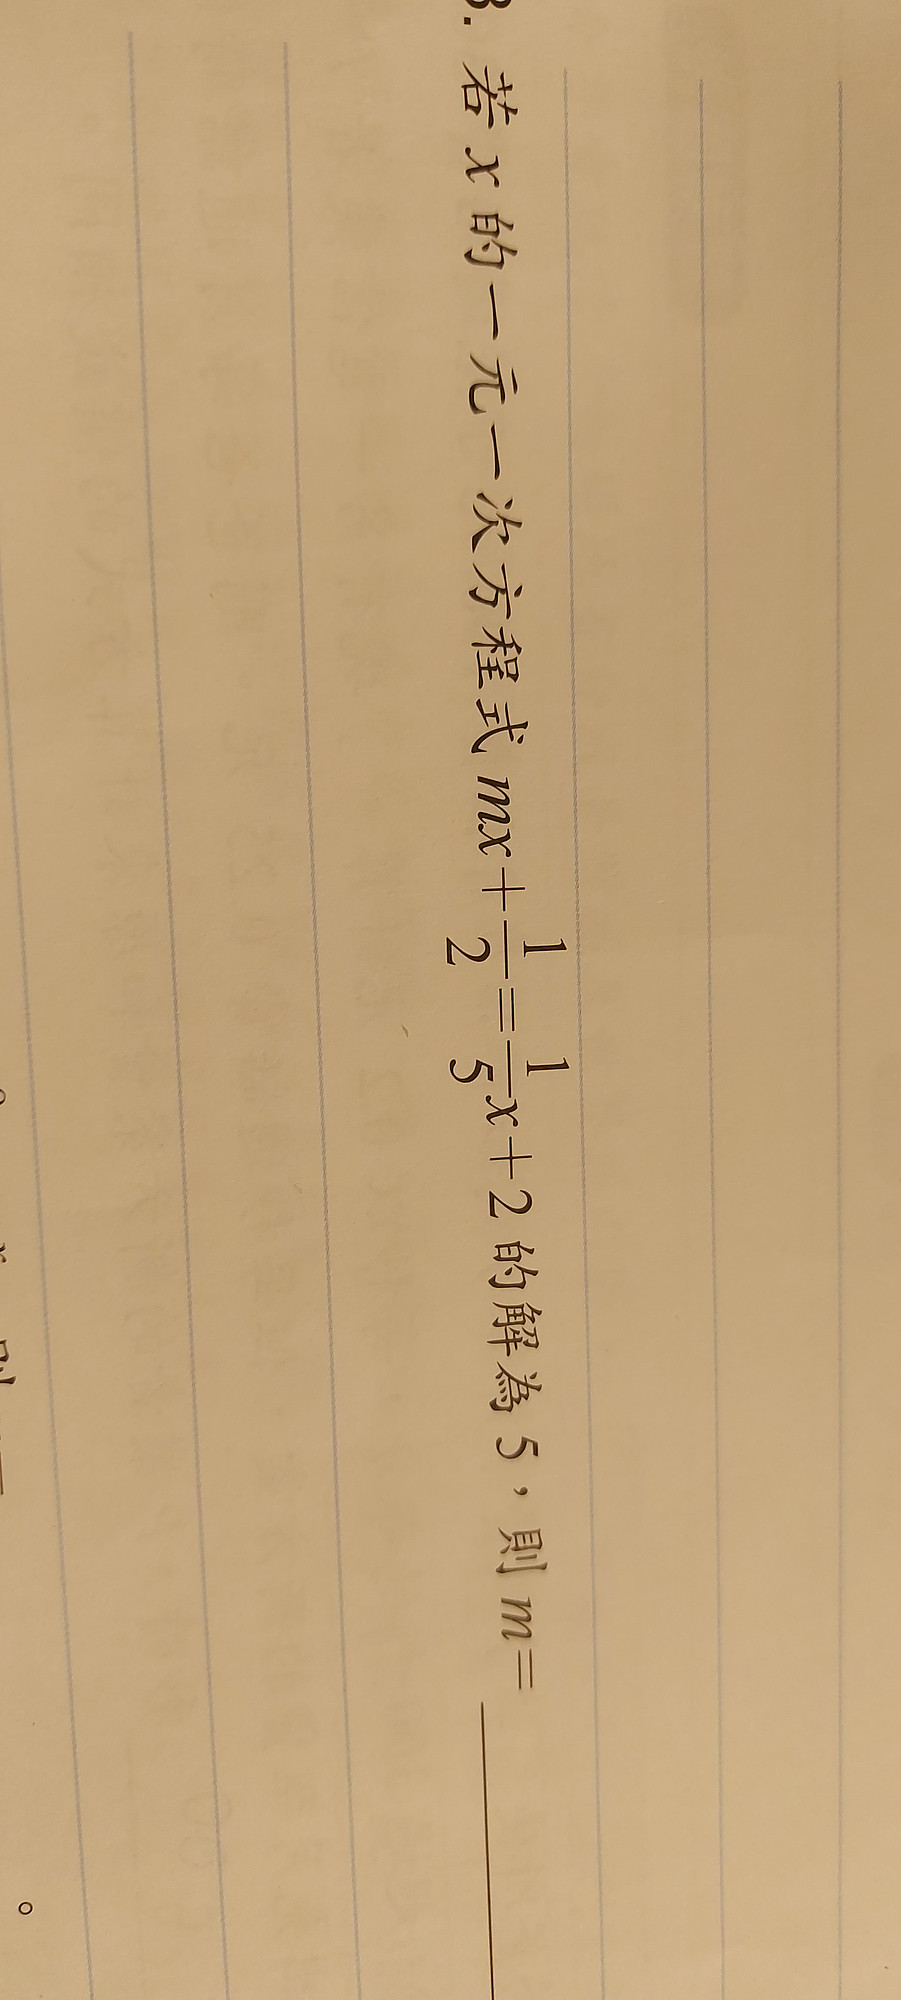 3. 若 x 的一元一次方程式 mx+\frac{1}{2}=\frac{1}{5}x+2 的解為 5，則 m=
x
則
。